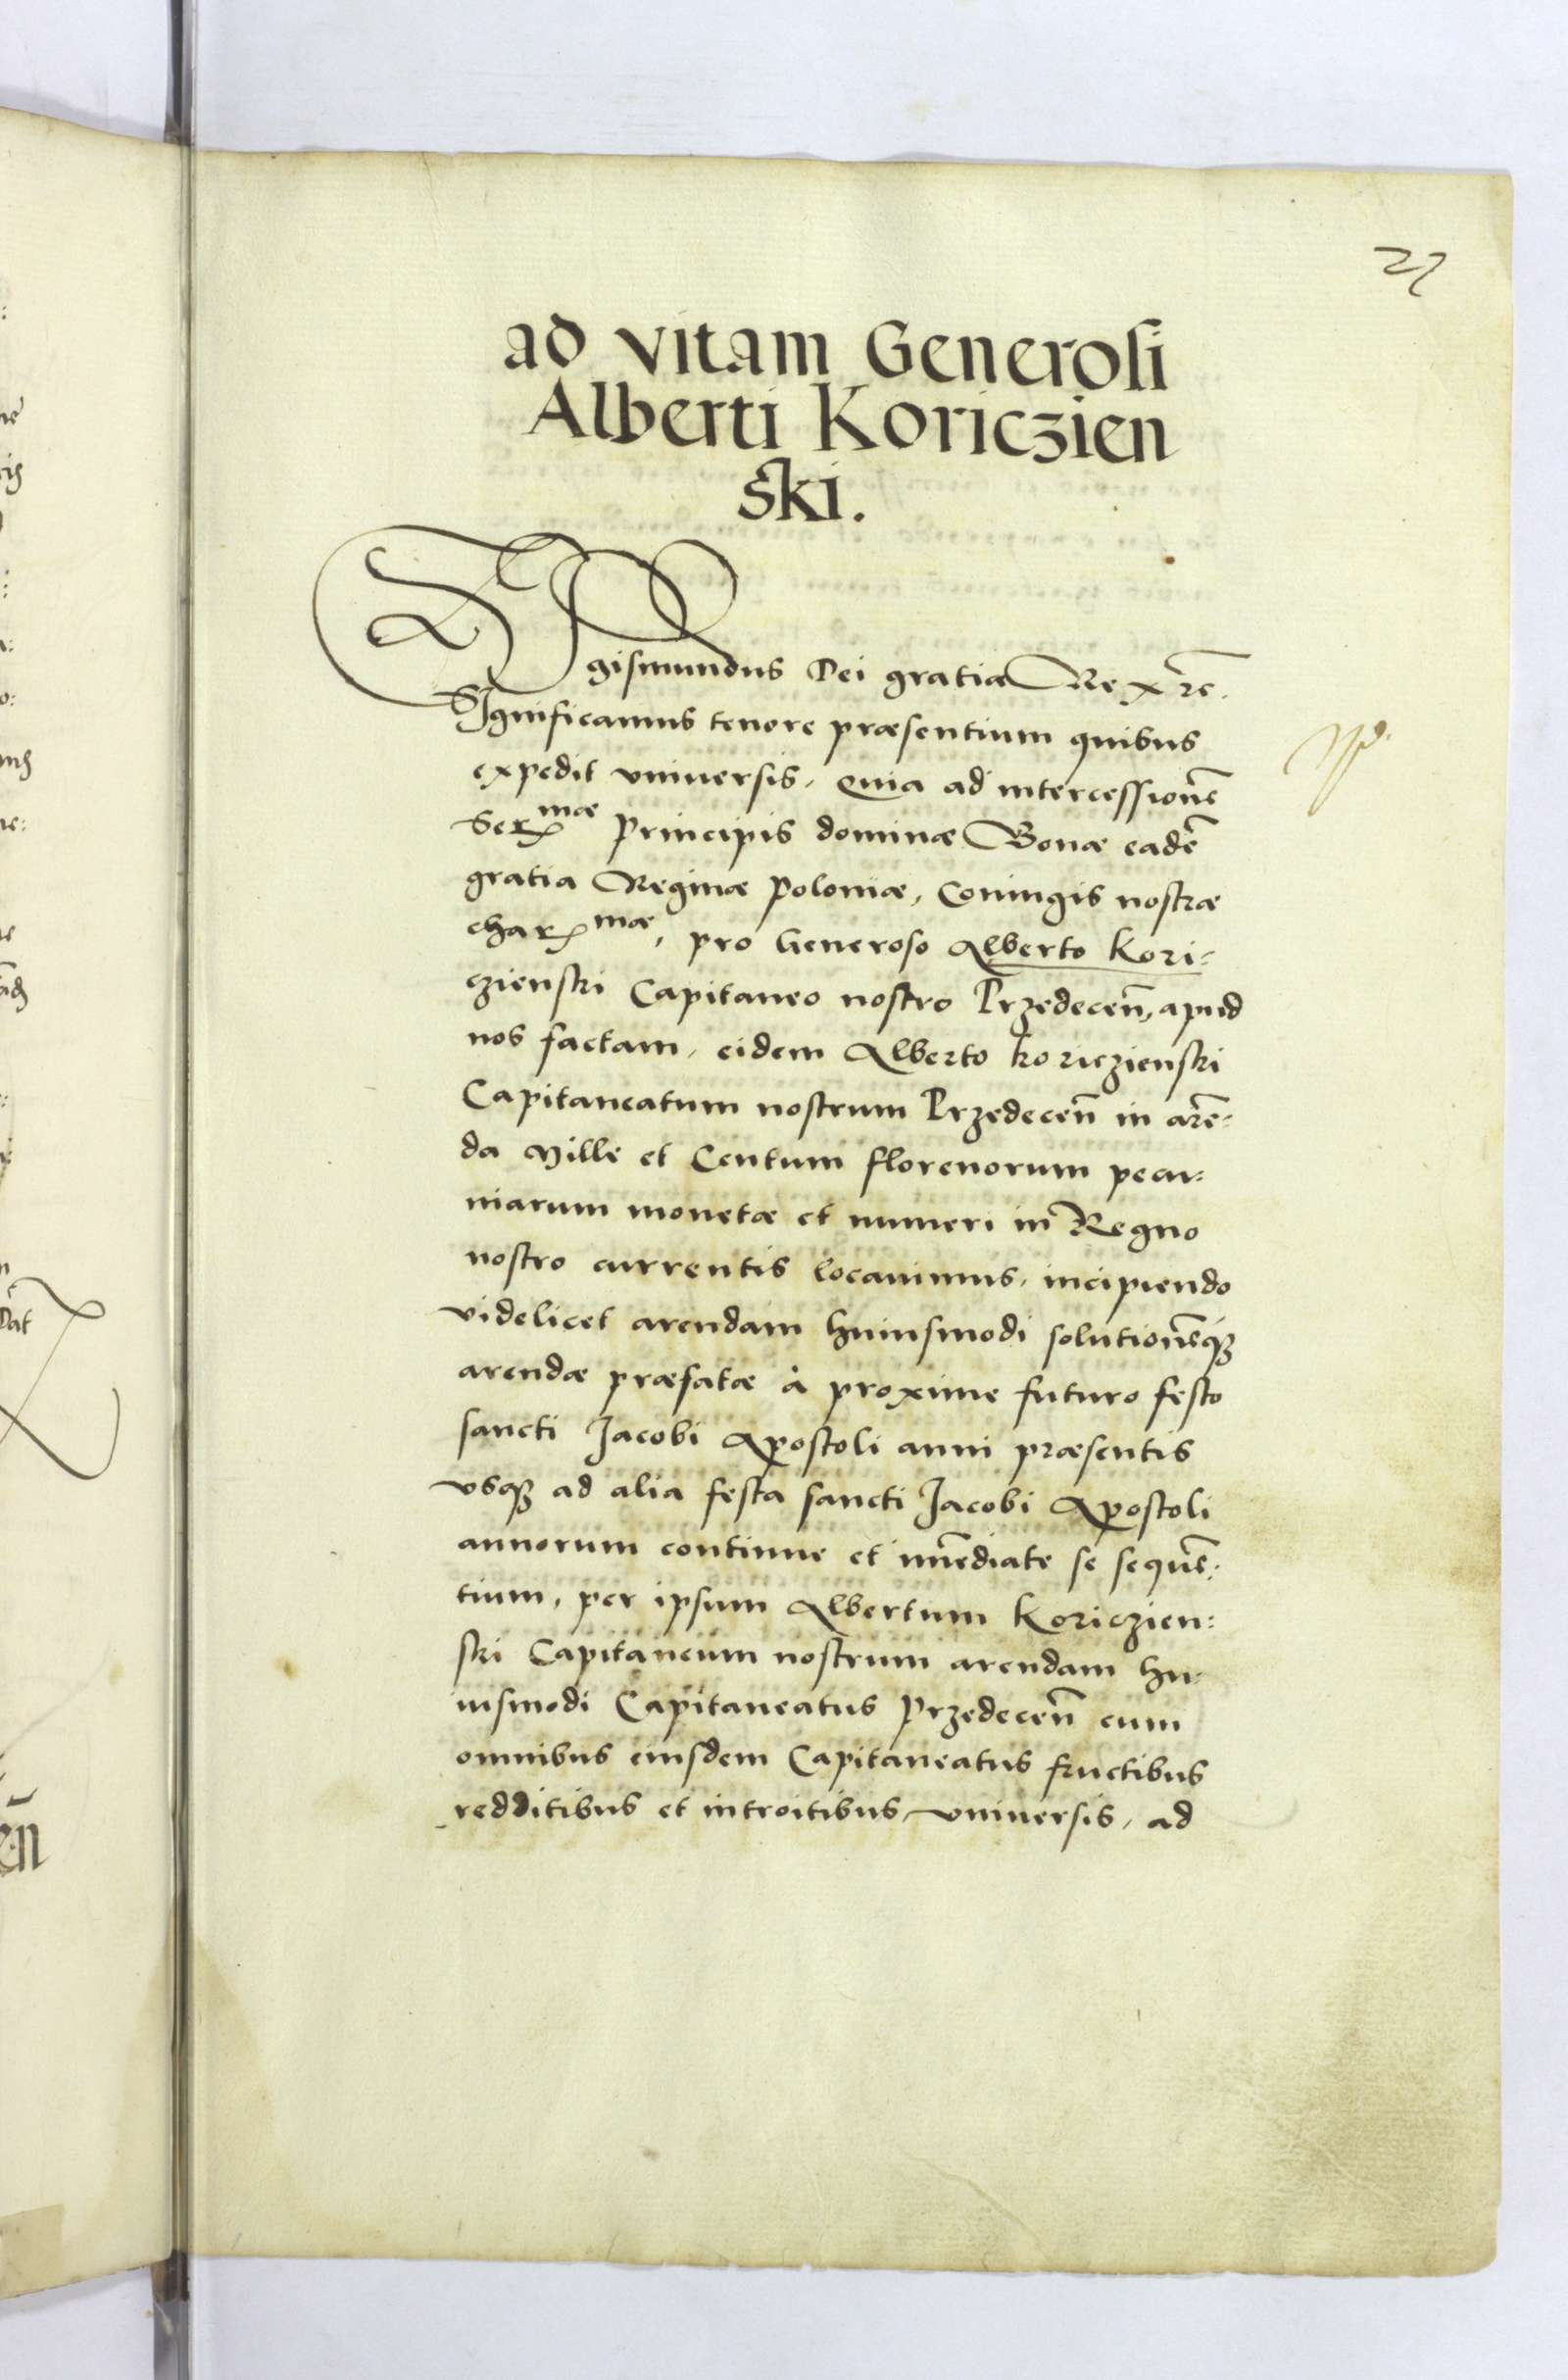 27
ad vitam Generosi
Alberti Koriczien
ski.
Sigismundus Dei gratia Rex etc.
Significamus tenore præsentium quibus
expedit vniuersis, Quia ad intercessionē
Serᵐᵃᵉ principis dominæ Bonæ eadē
gratia Reginæ poloniæ, Coniugis nostræ
charᵐᵃᵉ, pro Generoso Alberto Kori-
czienski Capitaneo nostro Przedeceñ, apud
nos factam, eidem Alberto koriczienski
Capitaneatum nostrum Przedeceñ in arē-
da Mille et Centum florenorum pecu-
niarum monetæ et numeri in Regno
nostro currentis locauimus, incipiendo
videlicet arendam huiusmodi solutionēq3
arendæ præfatæ à proxime futuro festo
sancti Jacobi Apostoli anni præsentis
vsq3 ad alia festa sancti Jacobi Apostoli
annorum continue et īmediate se sequē-
tium, per ipsum Albertum Koriczien-
ski Capitaneum nostrum arendam hu-
iusmodi Capitaneatus Przedeceñ cum
omnibus eiusdem Capitaneatus fructibus
redditibus et introitibus vniuersis, ad